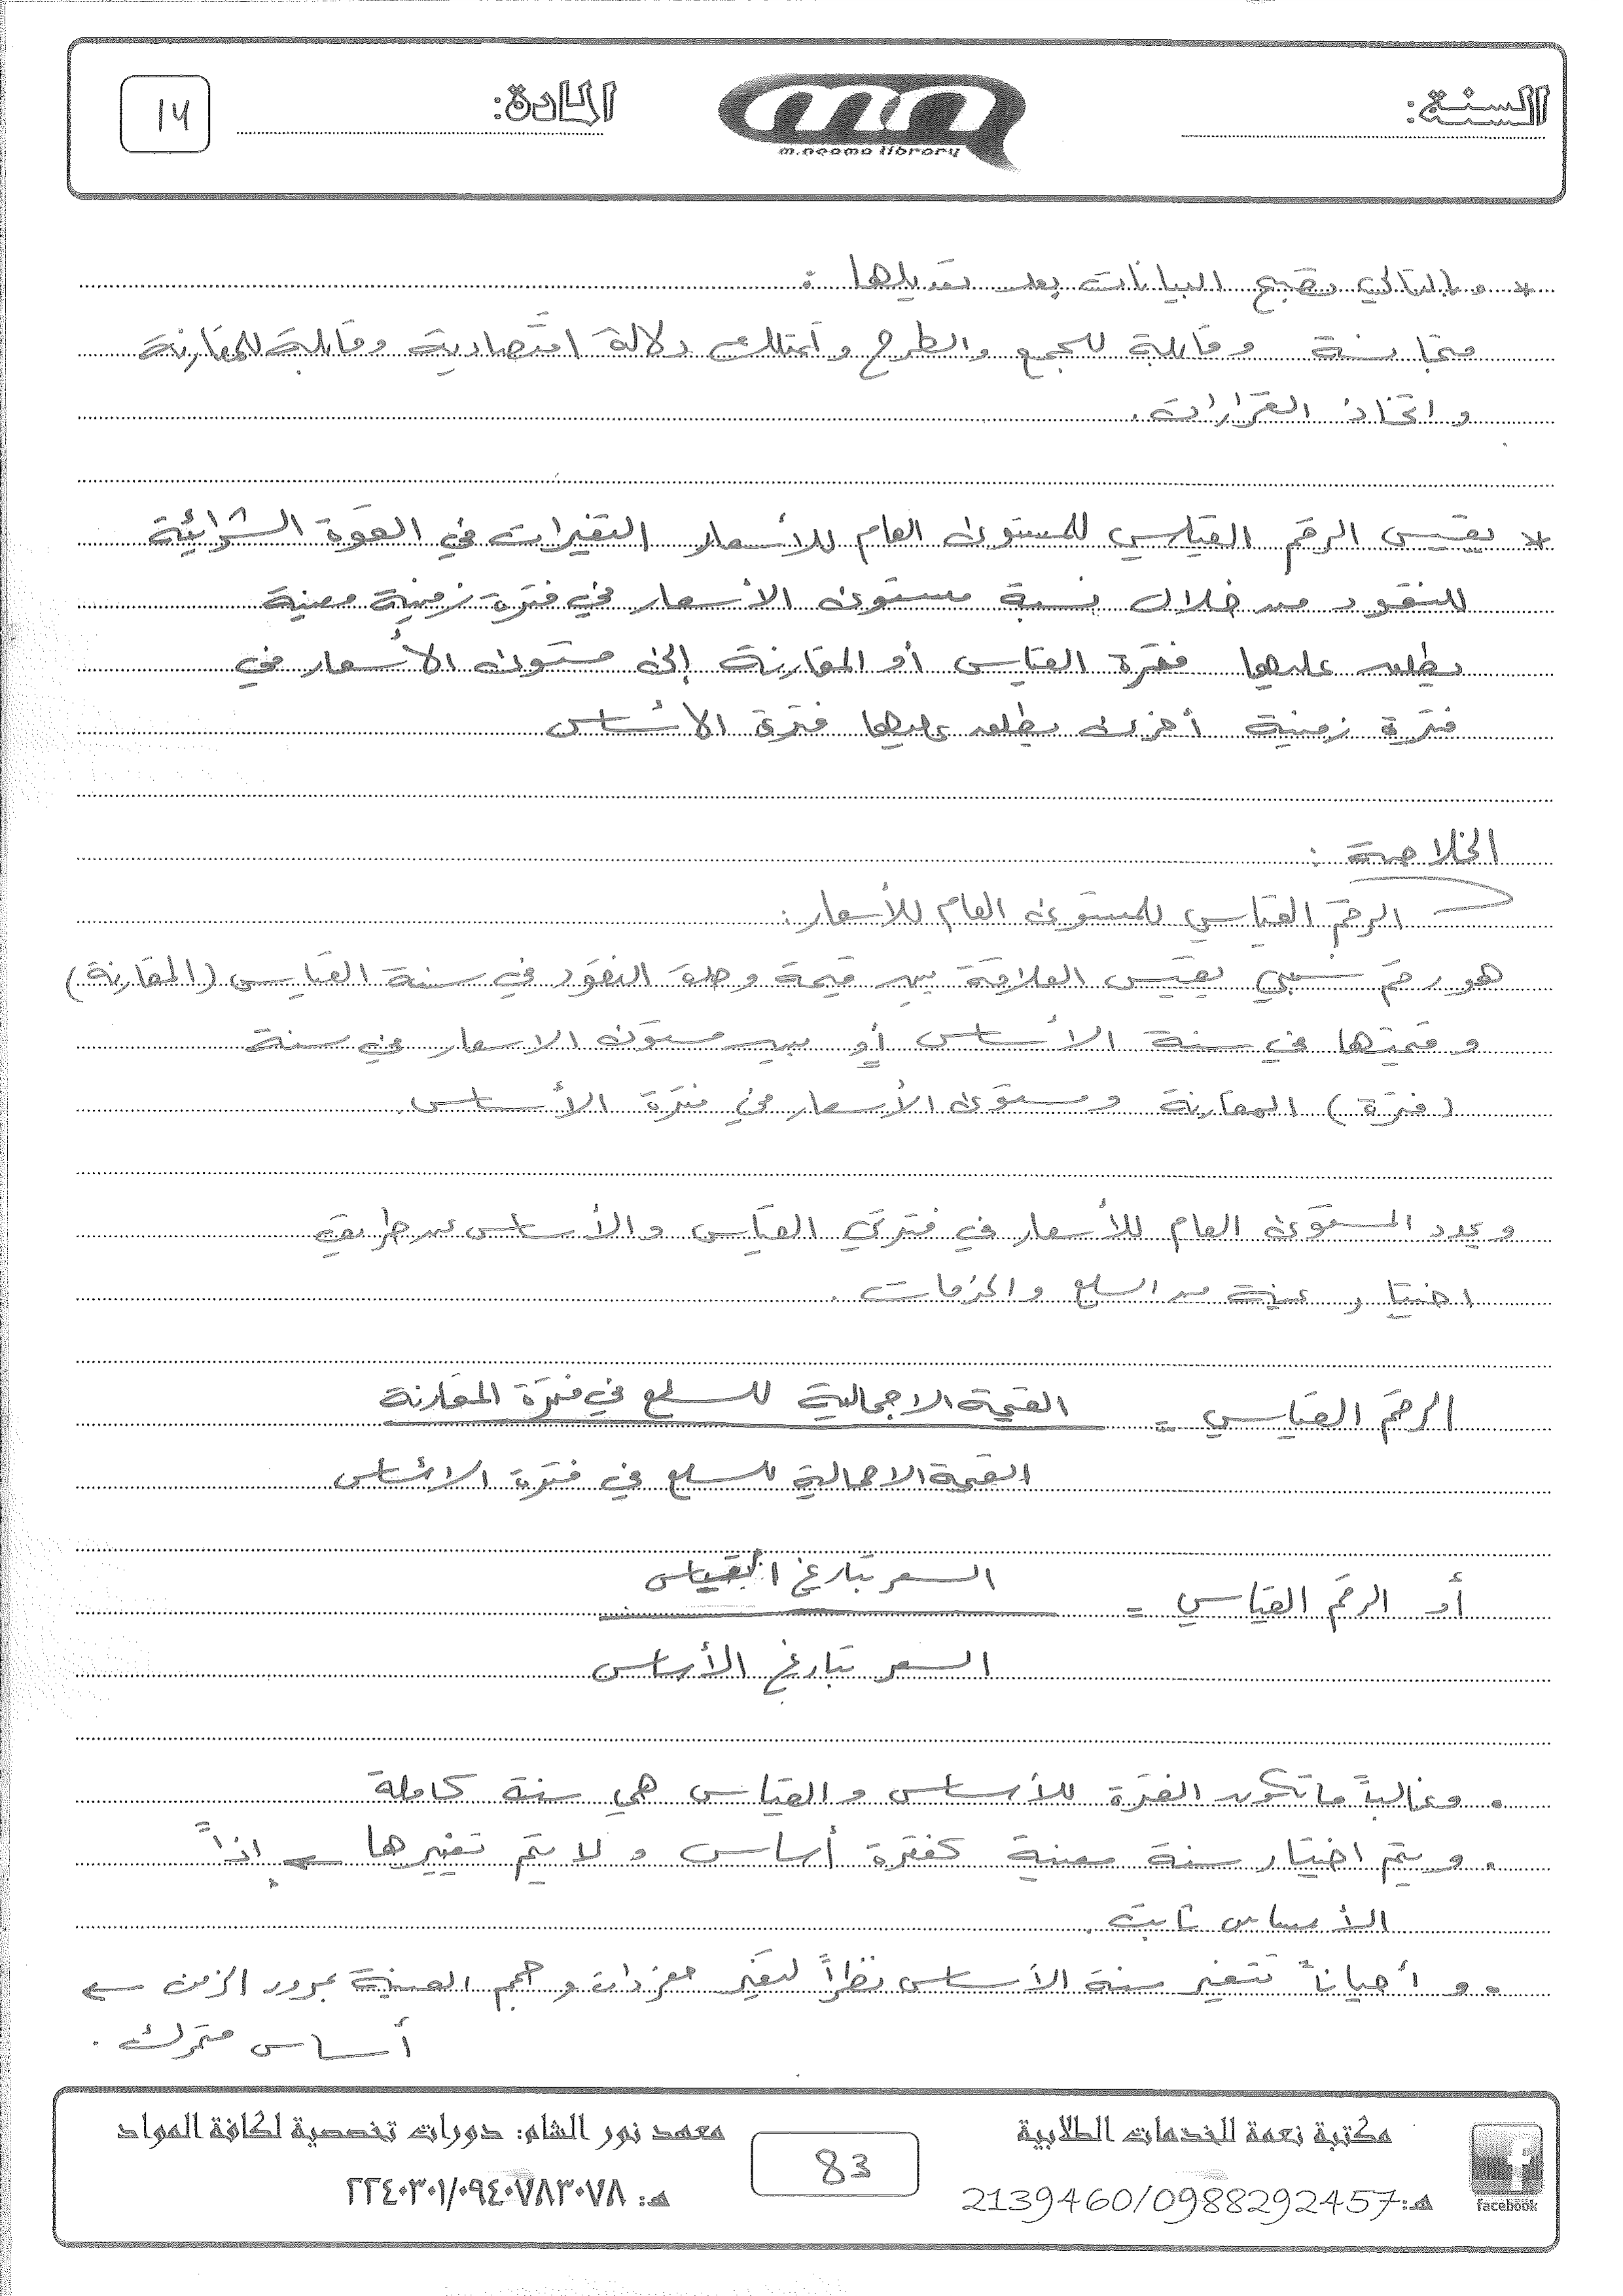 السنة:
m.neama library
المادة:
١٧
* وبالتالي تصبح البيانات بعد تعديلها :
متجانسة وقابلة للجمع والطرح وتمتلك دلالة اقتصادية وقابلة للمقارنة
واتخاذ القرارات.
* يقيس الرقم القياسي للمستوى العام للأسعار التغيرات في القوة الشرائية
للنقود من خلال نسبة مستوى الأسعار في فترة زمنية معينة
يطلق عليها فترة القياس أو المقارنة إلى مستوى الأسعار في
فترة زمنية أخرى يطلق عليها فترة الأساس
الخلاصة :
الرقم القياسي للمستوى العام للأسعار :
هو رقم نسبي يقيس العلاقة بين قيمة وحدة النقود في سنة القياس (المقارنة)
وقيمتها في سنة الأساس أو بين مستوى الاسعار في سنة
(فترة) المقارنة ومستوى الأسعار في فترة الأساس.
ويحدد المستوى العام للأسعار في فترتي القياس والأساس عن طريق
اختيار عينة من السلع والخدمات .
الرقم القياسي = القيمة الاجمالية للسلع في فترة المقارنة
القيمة الاجمالية للسلع في فترة الأساس
أو الرقم القياسي = السعر بتاريخ القياس
السعر بتاريخ الأساس
• وغالباً ما تكون الفترة للأساس والقياس هي سنة كاملة
• ويتم اختيار سنة معينة كفترة أساس ولا يتم تغييرها ← إذاً
الأساس ثابت.
• وأحياناً تتغير سنة الأساس نظراً لتغير مفردات وحجم العينة بمرور الزمن ←
أساس متحرك .
مكتبة نعمة للخدمات الطلابية
هـ: 2139460/0988292457
facebook
83
معهد نور الشام: دورات تخصصية لكافة المواد
هـ: ٢٢٤٠٣٠١/٠٩٤٠٧٨٣٠٧٨